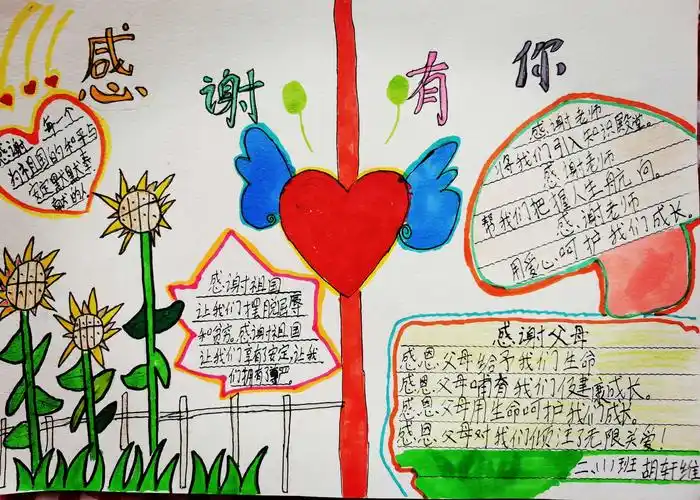 感谢有你
感谢每一个
为祖国的和平与
安定默默奉
献的人
感谢祖国
让我们摆脱屈辱
和贫穷。感谢祖国
让我们享有安定,让我
们拥有尊严。
感谢老师
将我们引入知识殿堂。
感谢老师
帮我们把握人生航向。
感谢老师
用爱心呵护我们成长。
感谢父母
感恩父母给予我们生命
感恩父母哺育我们健康成长。
感恩父母用生命呵护我们成长。
感恩父母对我们倾注了无限关爱!
二.(1)班 胡轩维